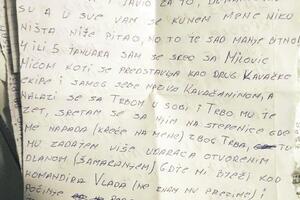 JAVIO ZA TO,
SU A U SVE VAM SE KUNEM MENE NIKO
NIŠTA NIJE PITAO, NO TO JE SAD MANJE BITNO
4 ILI 5 JANUARA SAM SE SREO SA MILOVIC
MIĆOM KOJI SE PREDSTAVLJA KAO DRUG KAVAČKE
EKIPE I SAMOG SEBE NAZIVA KAVAČANINOM, A
NALAZI SE SA TRBOM U SOBI I TRBO MU JE
ZET, SRETAM SE SA NJIM NA STEPENICE GDE
ME NAPADA (KREĆE NA MENE) ZBOG TRBA,
MU ZADAJEM VIŠE UDARACA OTVORENIM
DLANOM (ŠAMARANJEM) GDJE MI BJEŽI KOD
KOMANDIRA VLADA (NE ZNAM MU PREZIME) I
POČINJE